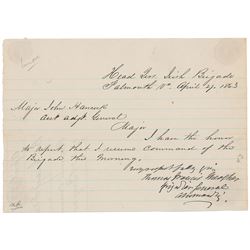 Head Qrs. Irish Brigade
Falmouth Va. April 27. 1863
Major John Hancock
Asst Adjt. General
Major
I have the honor
to report, that I resume command of this
Brigade this morning.
Thomas Francis Meagher
Brigadier General